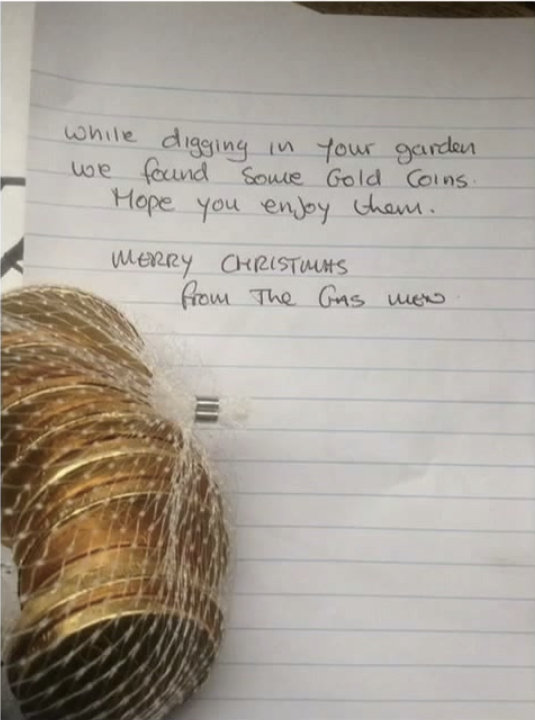 while digging in your garden
we found some Gold Coins.
Hope you enjoy them.
MERRY CHRISTMAS
from The Gas men